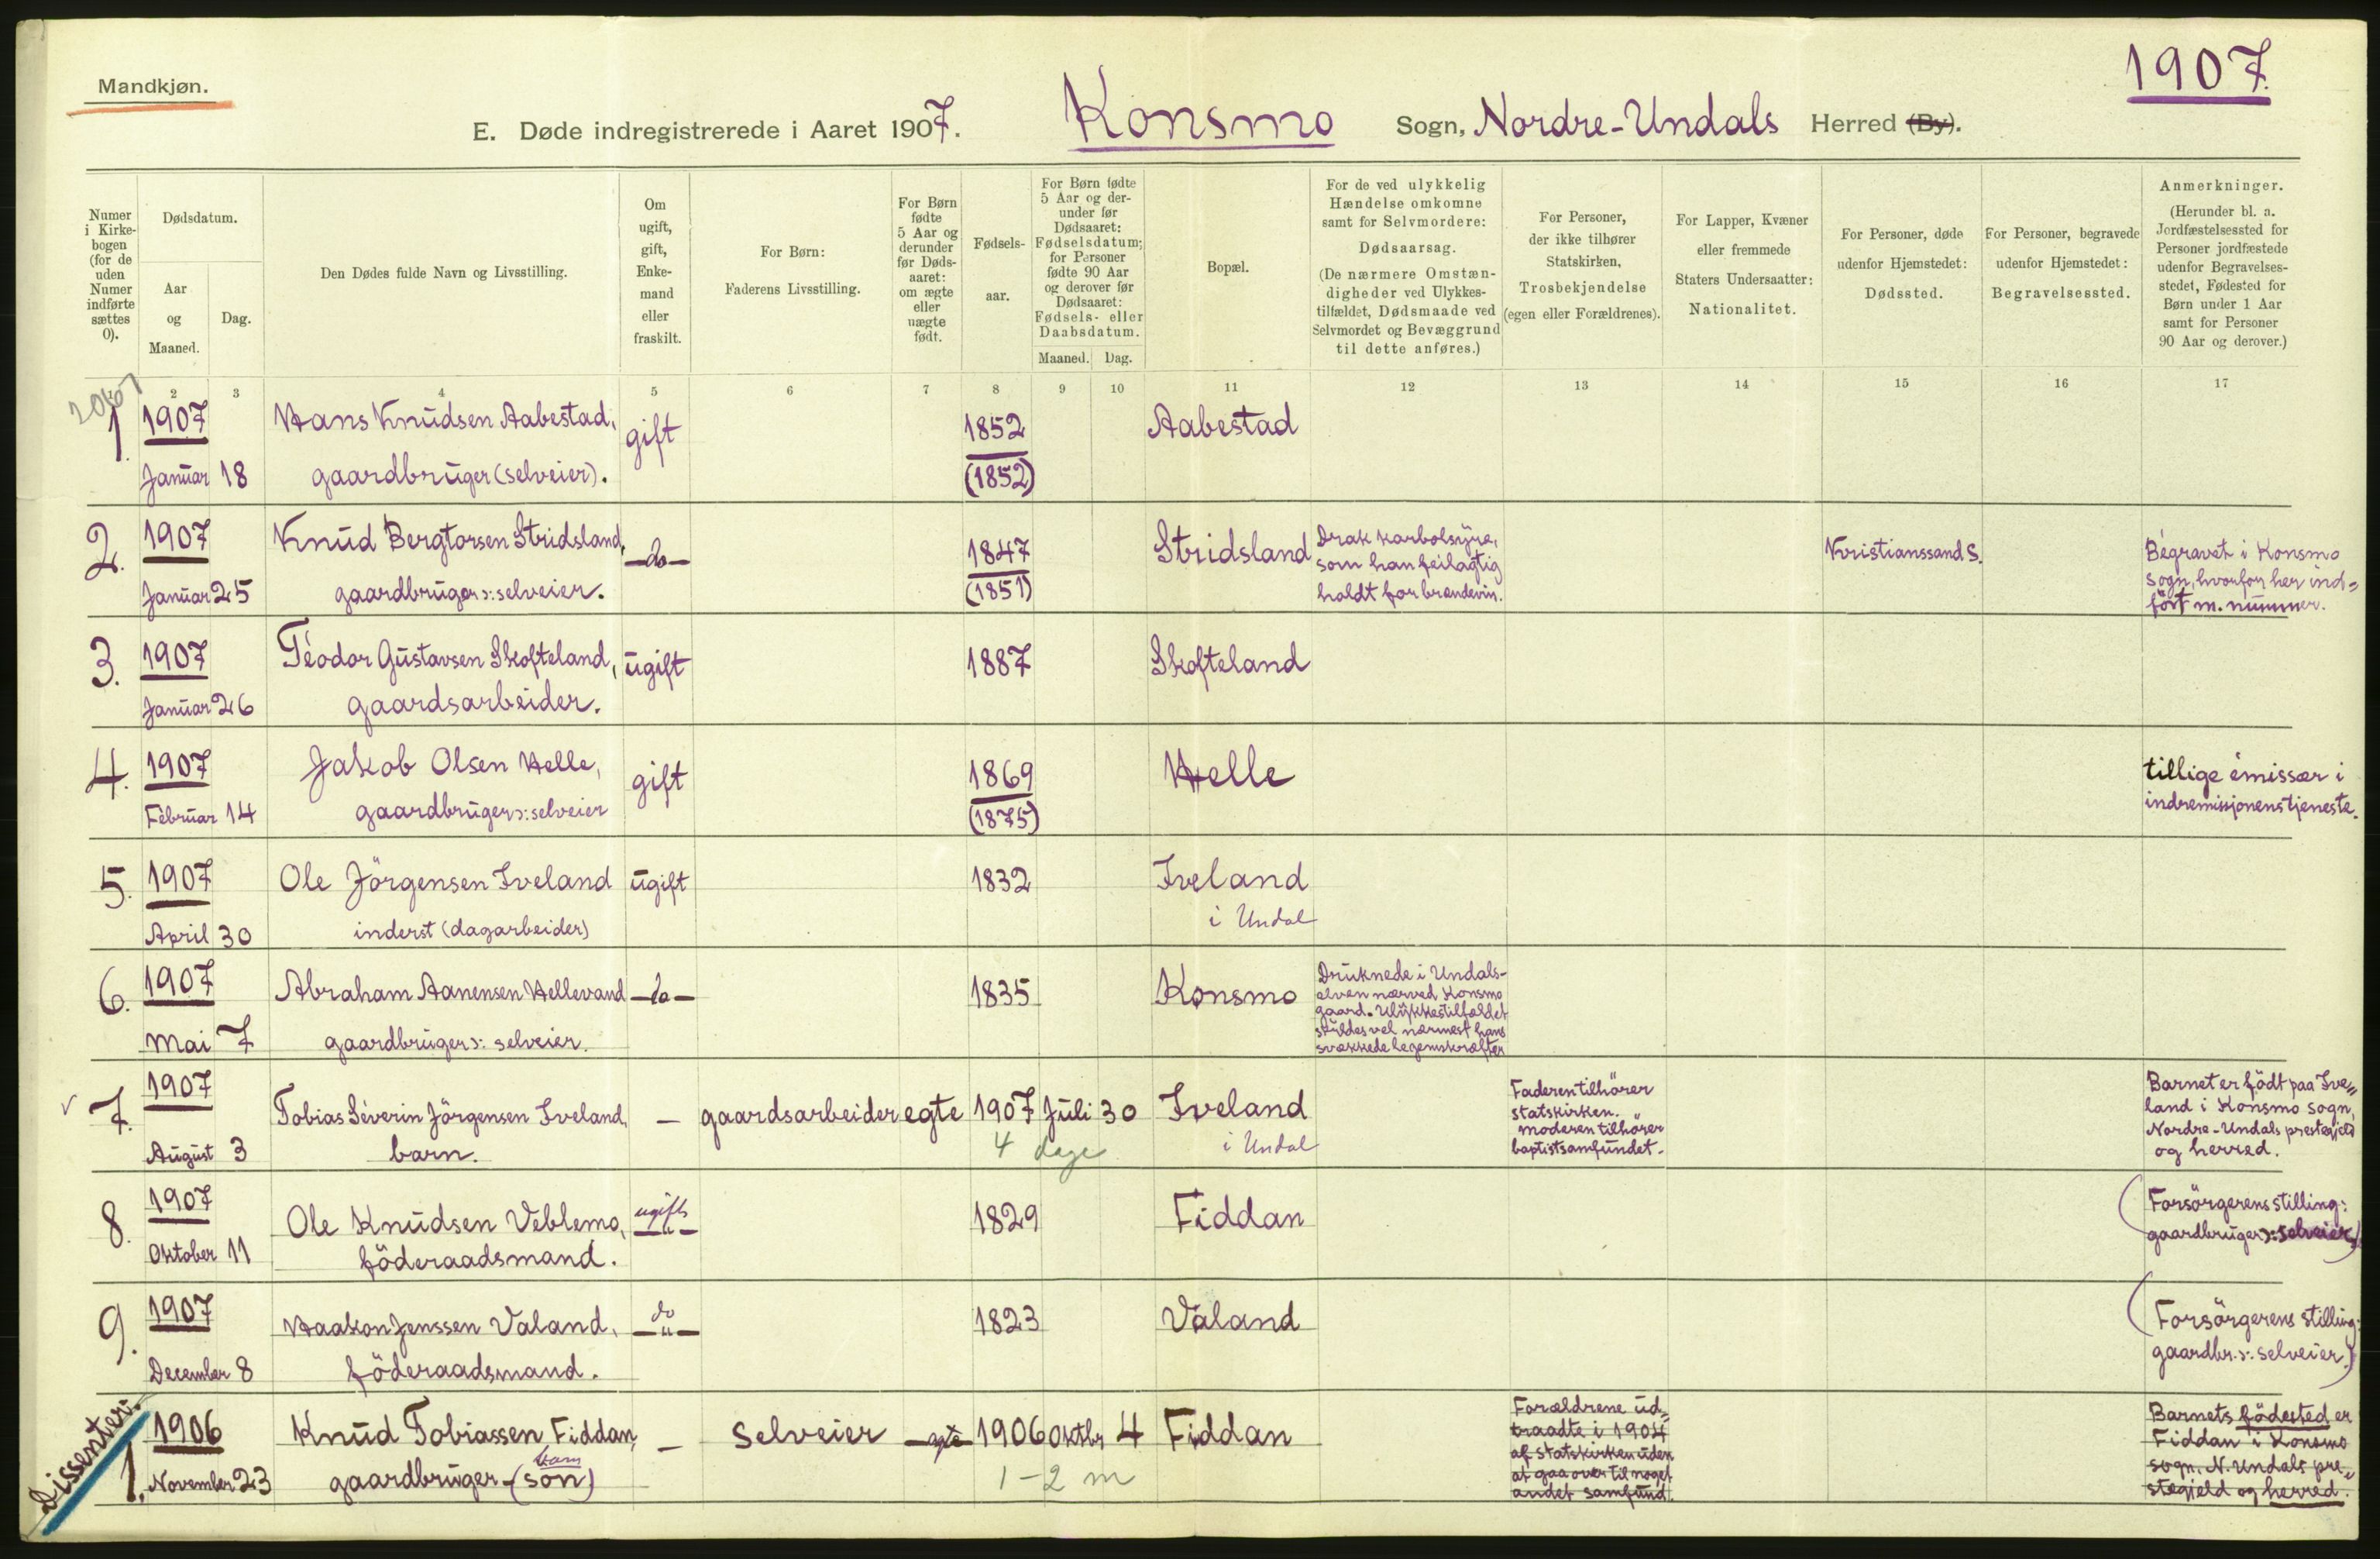 Mandkjøn.
1907.
E. Døde indregistrerede i Aaret 1907. Konsmo Sogn, Nordre-Undals Herred (By).
Numer i Kirke-bogen (for de uden Numer indførte sættes 0).
Dødsdatum.
Aar og Maaned.
Dag.
Den Dødes fulde Navn og Livsstilling.
Om ugift, gift, Enke-mand eller fraskilt.
For Børn: Faderens Livsstilling.
For Børn fødte 5 Aar og derunder før Døds-aaret: om ægte eller uægte født.
Fødsels-aar.
For Børn fødte 5 Aar og der-under før Dødsaaret: Fødselsdatum; for Personer fødte 90 Aar og derover før Dødsaaret: Fødsels- eller Daabsdatum.
Maaned. Dag.
Bopæl.
For de ved ulykkelig Hændelse omkomne samt for Selvmordere: Dødsaarsag. (De nærmere Omstæn-digheder ved Ulykkes-tilfældet, Dødsmaade ved Selvmordet og Bevæggrund til dette anføres.)
For Personer, der ikke tilhører Statskirken, Trosbekjendelse (egen eller Forældrenes).
For Lapper, Kvæner eller fremmede Staters Undersaatter: Nationalitet.
For Personer, døde udenfor Hjemstedet: Dødssted.
For Personer, begravede udenfor Hjemstedet: Begravelsessted.
Anmerkninger. (Herunder bl. a. Jordfæstelsessted for Personer jordfæstede udenfor Begravelses-stedet, Fødested for Børn under 1 Aar samt for Personer 90 Aar og derover.)
2 3 4 5 6 7 8 9 10 11 12 13 14 15 16 17
1. 1907 Januar 18
Hans Knudsen Aabestad,
gaardbruger (selveier).
gift
1852
(1852)
Aabestad
2. 1907 Januar 25
Knud Bergtorsen Stridsland,
gaardbruger ɔ: selveier.
—do—
1847
(1851)
Stridsland
Drak karbolsyre,
som han feilagtig
holdt for brændevin.
Kristianssand S.
Begravet i Konsmo
sogn, hvorfor her ind=
ført m. nummer.
3. 1907 Januar 26
Teodor Gustavsen Skofteland,
gaardsarbeider.
ugift
1887
Skofteland
4. 1907 Februar 14
Jakob Olsen Helle,
gaardbruger ɔ: selveier
gift
1869
(1875)
Helle
tillige emissær i
indremissjonens tjeneste.
5. 1907 April 30
Ole Jörgensen Iveland
inderst (dagarbeider)
ugift
1832
Iveland
i Undal
6. 1907 Mai 7
Abraham Aanensen Hellevand
gaardbruger ɔ: selveier.
—do—
1835
Konsmo
Druknede i Undals-
elven nærved Konsmo
gaard. Ulykkestilfældet
skuldes vel nærmest hans
svækkede legemskræfter
7. 1907 August 3
Tobias Severin Jörgensen Iveland,
barn.
—
gaardsarbeider
egte
1907 Juli 30
4 dage
Iveland
i Undal
Faderen tilhörer
statskirken.
moderen tilhörer
baptistsamfundet.
Barnet er födt paa Ive=
land i Konsmo sogn,
Nordre-Undals prestegjeld
og herred.
8. 1907 Oktober 11
Ole Knudsen Veblemo,
föderaadsmand.
ugift
—"—
1829
Fiddan
(Forsörgerens stilling:
gaardbruger ɔ: selveier)
9. 1907 December 8
Haakon Jenssen Valand,
föderaadsmand.
do
—"—
1823
Valand
(Forsörgerens stilling:
gaardbr. ɔ: selveier.)
Dissenter:
1. 1906 November 23
Knud Tobiassen Fiddan,
barn
gaardbruger-(sön)
—
selveier
egte
1906 Oktbr 4
1-2 m
Fiddan
Forældrene ud=
traadte i 1904
af statskirken uden
at gaa over til noget
andet samfund.
Barnets födested er
Fiddan i Konsmo
sogn, N. Undals pre=
stegjeld og herred.